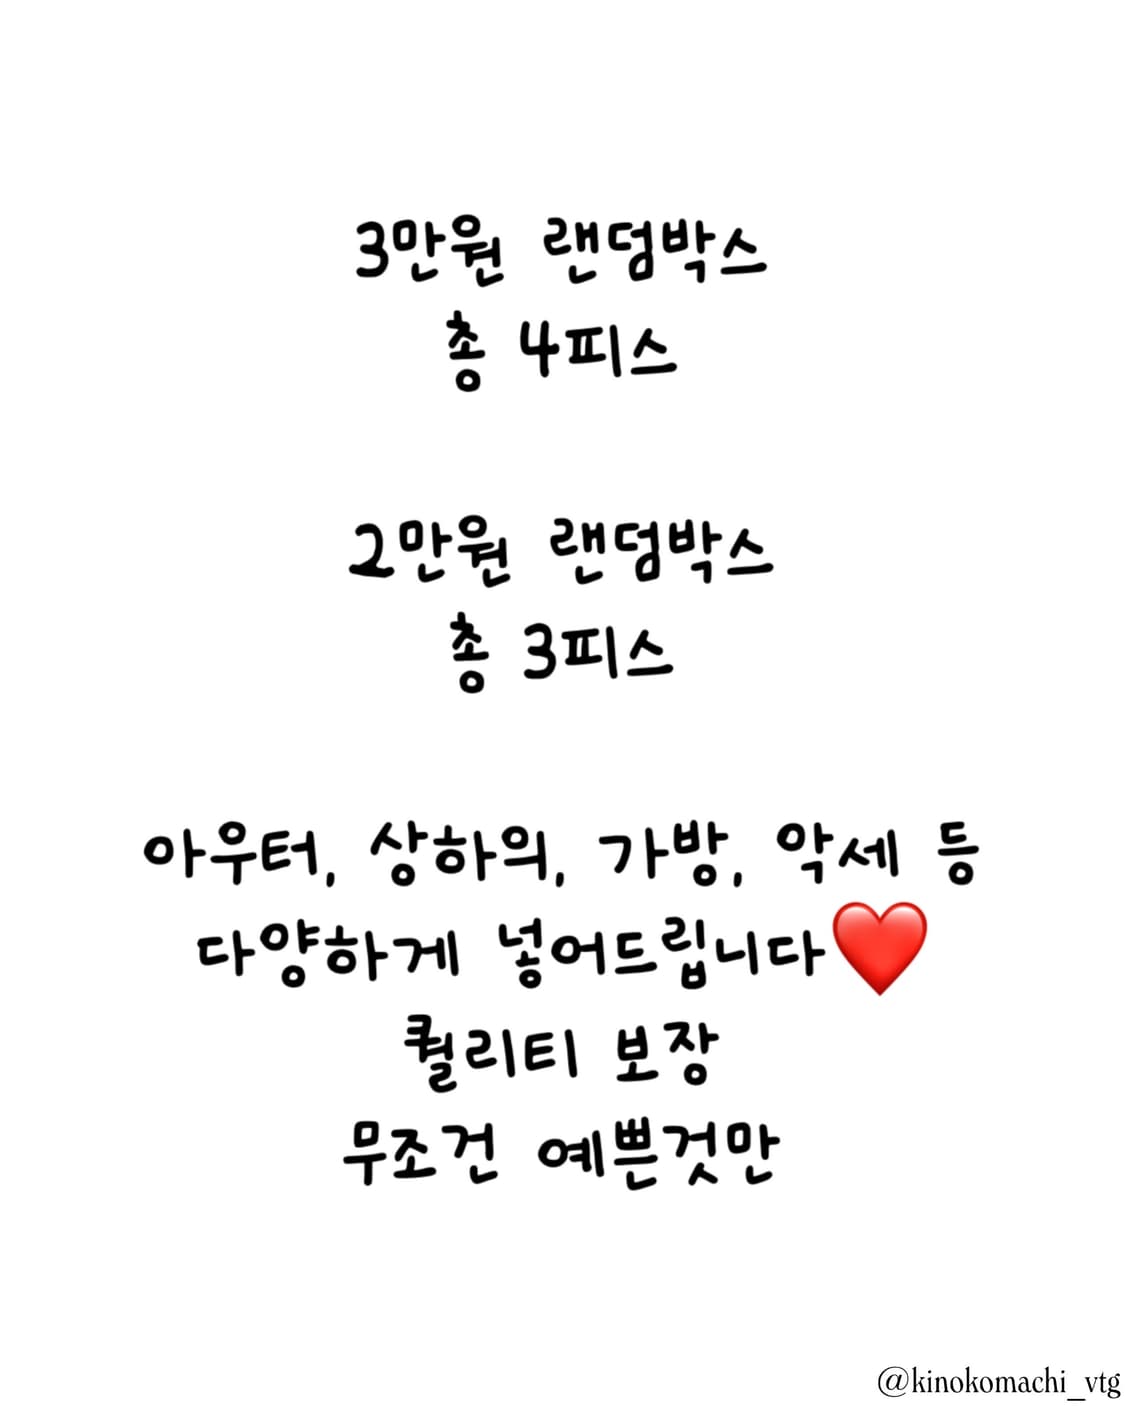 3만원 랜덤박스
총 4피스
2만원 랜덤박스
총 3피스
아우터, 상하의, 가방, 악세 등
다양하게 넣어드립니다❤️
퀄리티 보장
무조건 예쁜것만
@kinokomachi_vtg